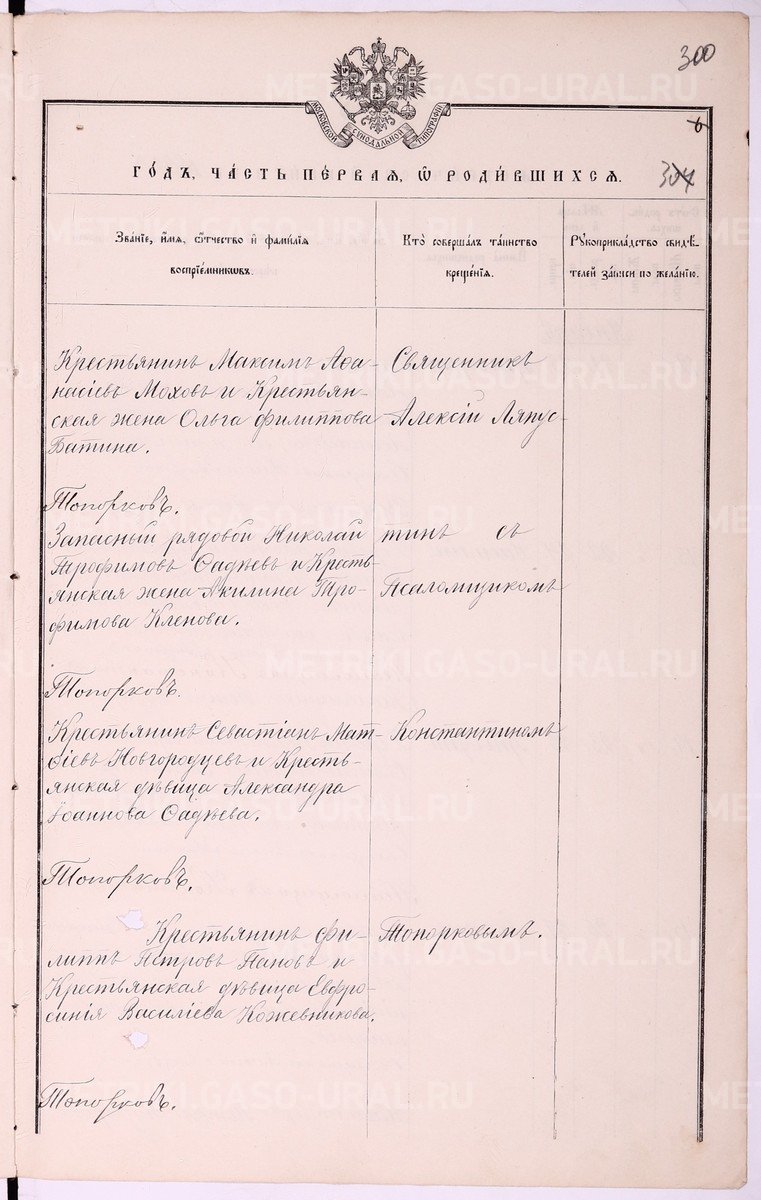 300
МОСКОВСКОЙ СѴНОДАЛЬНОЙ ТИПОГРАФІИ
6
ГО́ДЪ, ЧА́СТЬ ПЕ́РВАЯ, Ѡ҆ РОДИ́ВШИХСЯ.
304
Зва́нїе, и҆́мѧ, ѻ҆́тчество и҆ фамі́лїѧ
воспрїе́мникѡвъ.
Кто̀ соверша́лъ та́инство
креще́нїѧ.
Рꙋкоприкла́дство свидѣ́-
телей за́писи по жела́нїю.
Крестьянинъ Максимъ Аѳа-
насіевъ Моховъ и Крестьян-
ская жена Ольга Филиппова
Батина.
Священникъ
Алексій Ляпус-
Топорковъ.
Запасный рядовой Николай
Трофимовъ Садѣевъ и Кресть-
янская жена Акилина Тро-
фимова Кленова.
тинъ съ
Псаломщикомъ
Топорковъ.
Крестьянинъ Севастіанъ Мат-
ѳіевъ Новгородцевъ и Кресть-
янская дѣвица Александра
Іоаннова Садѣева.
Константиномъ
Топорковъ.
Крестьянинъ Фи-
липпъ Петровъ Пановъ и
Крестьянская дѣвица Евфро-
синія Василіева Кожевникова.
Топорковымъ.
Топорковъ.
METRIKI.GASO-URAL.RU